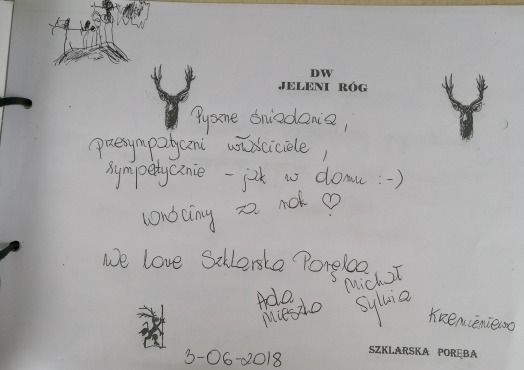 DW
JELENI RÓG
Pyszne śniadania,
przesympatyczni właściciele,
sympatycznie - jak w domu :-)
wrócimy za rok ♡
We love Szklarska Poręba
Michał
Ada
Sylwia
Mieszko
3-06-2018
SZKLARSKA PORĘBA